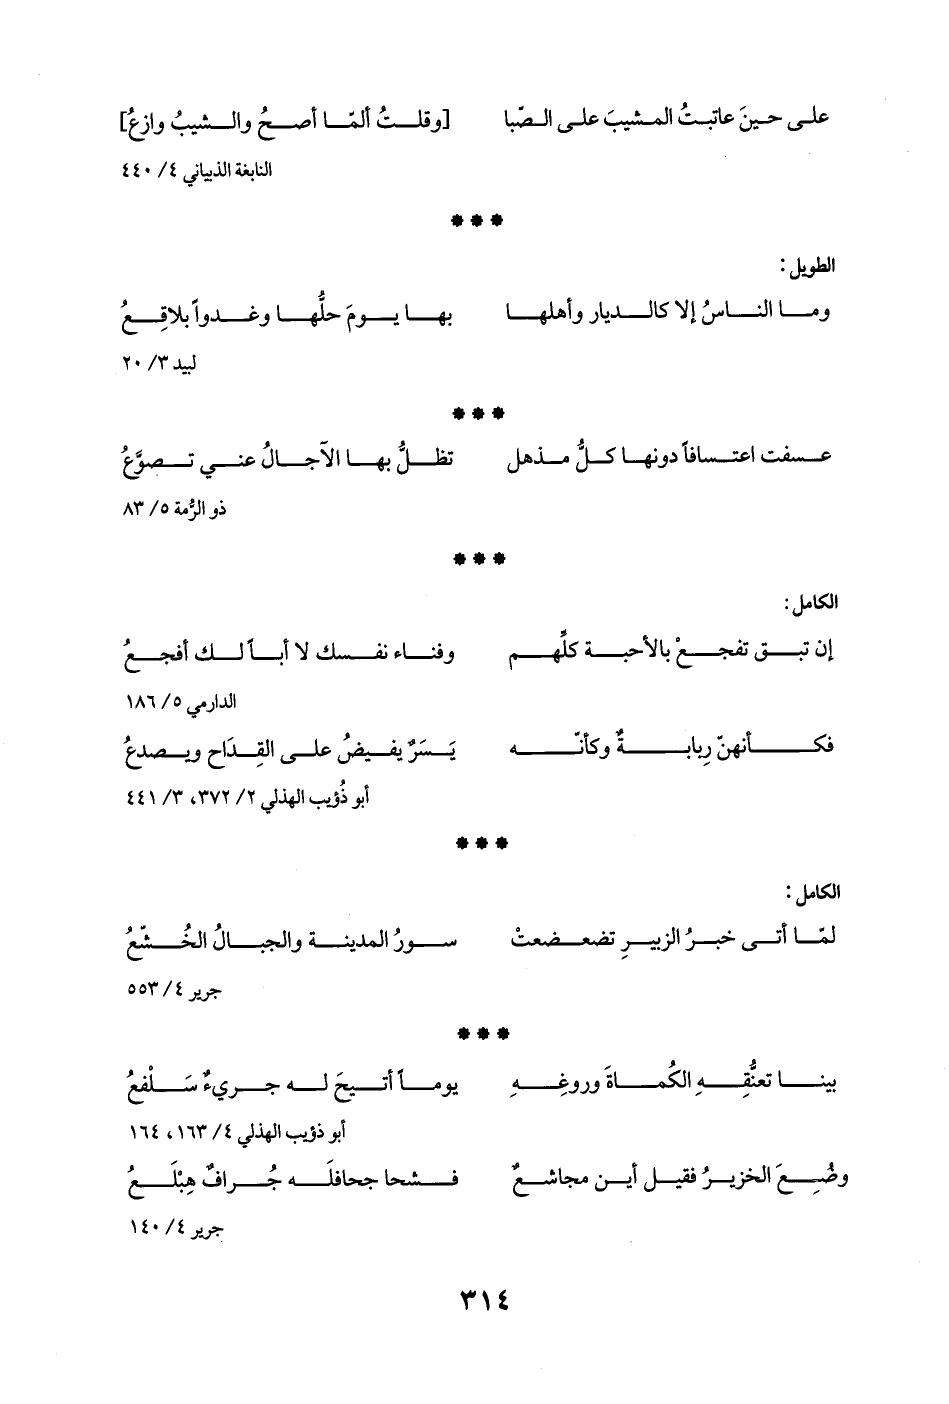 على حينَ عاتبتُ المشيبَ على الصّبا [وقلتُ ألمّا أصحُ والشيبُ وازعُ]
النابغة الذبياني ٤/ ٤٤٠
***
الطويل:
وما الناسُ إلا كالديار وأهلها بها يومَ حلُّها وغدواً بلاقِعُ
لبيد ٣/ ٢٠
***
عسفت اعتسافاً دونها كلُّ مذهل تظلُّ بها الآجالُ عني تصوَّعُ
ذو الرُّمة ٥/ ٨٣
***
الكامل:
إن تبق تفجعْ بالأحبة كلِّهم وفناء نفسك لا أباً لك أفجعُ
الدارمي ٥/ ١٨٦
فكأنهنّ رِبابةٌ وكأنّه يَسَرٌ يفيضُ على القِدَاح ويصدعُ
أبو ذُؤيب الهذلي ٢/ ٣٧٢، ٣/ ٤٤١
***
الكامل:
لمّا أتى خبرُ الزبيرِ تضعضعتْ سورُ المدينة والجبالُ الخُشّعُ
جرير ٤/ ٥٥٣
***
بينا تعنُّقِهِ الكُماةَ وروغِهِ يوماً أتيحَ له جريءٌ سَلْفعُ
أبو ذؤيب الهذلي ٤/ ١٦٣، ١٦٤
وضُعِ‍َ الخزيرُ فقيل أين مجاشعٌ فشحا جحافلَه جُرافٌ هِبْلَعُ
جرير ٤/ ١٤٠
٣١٤